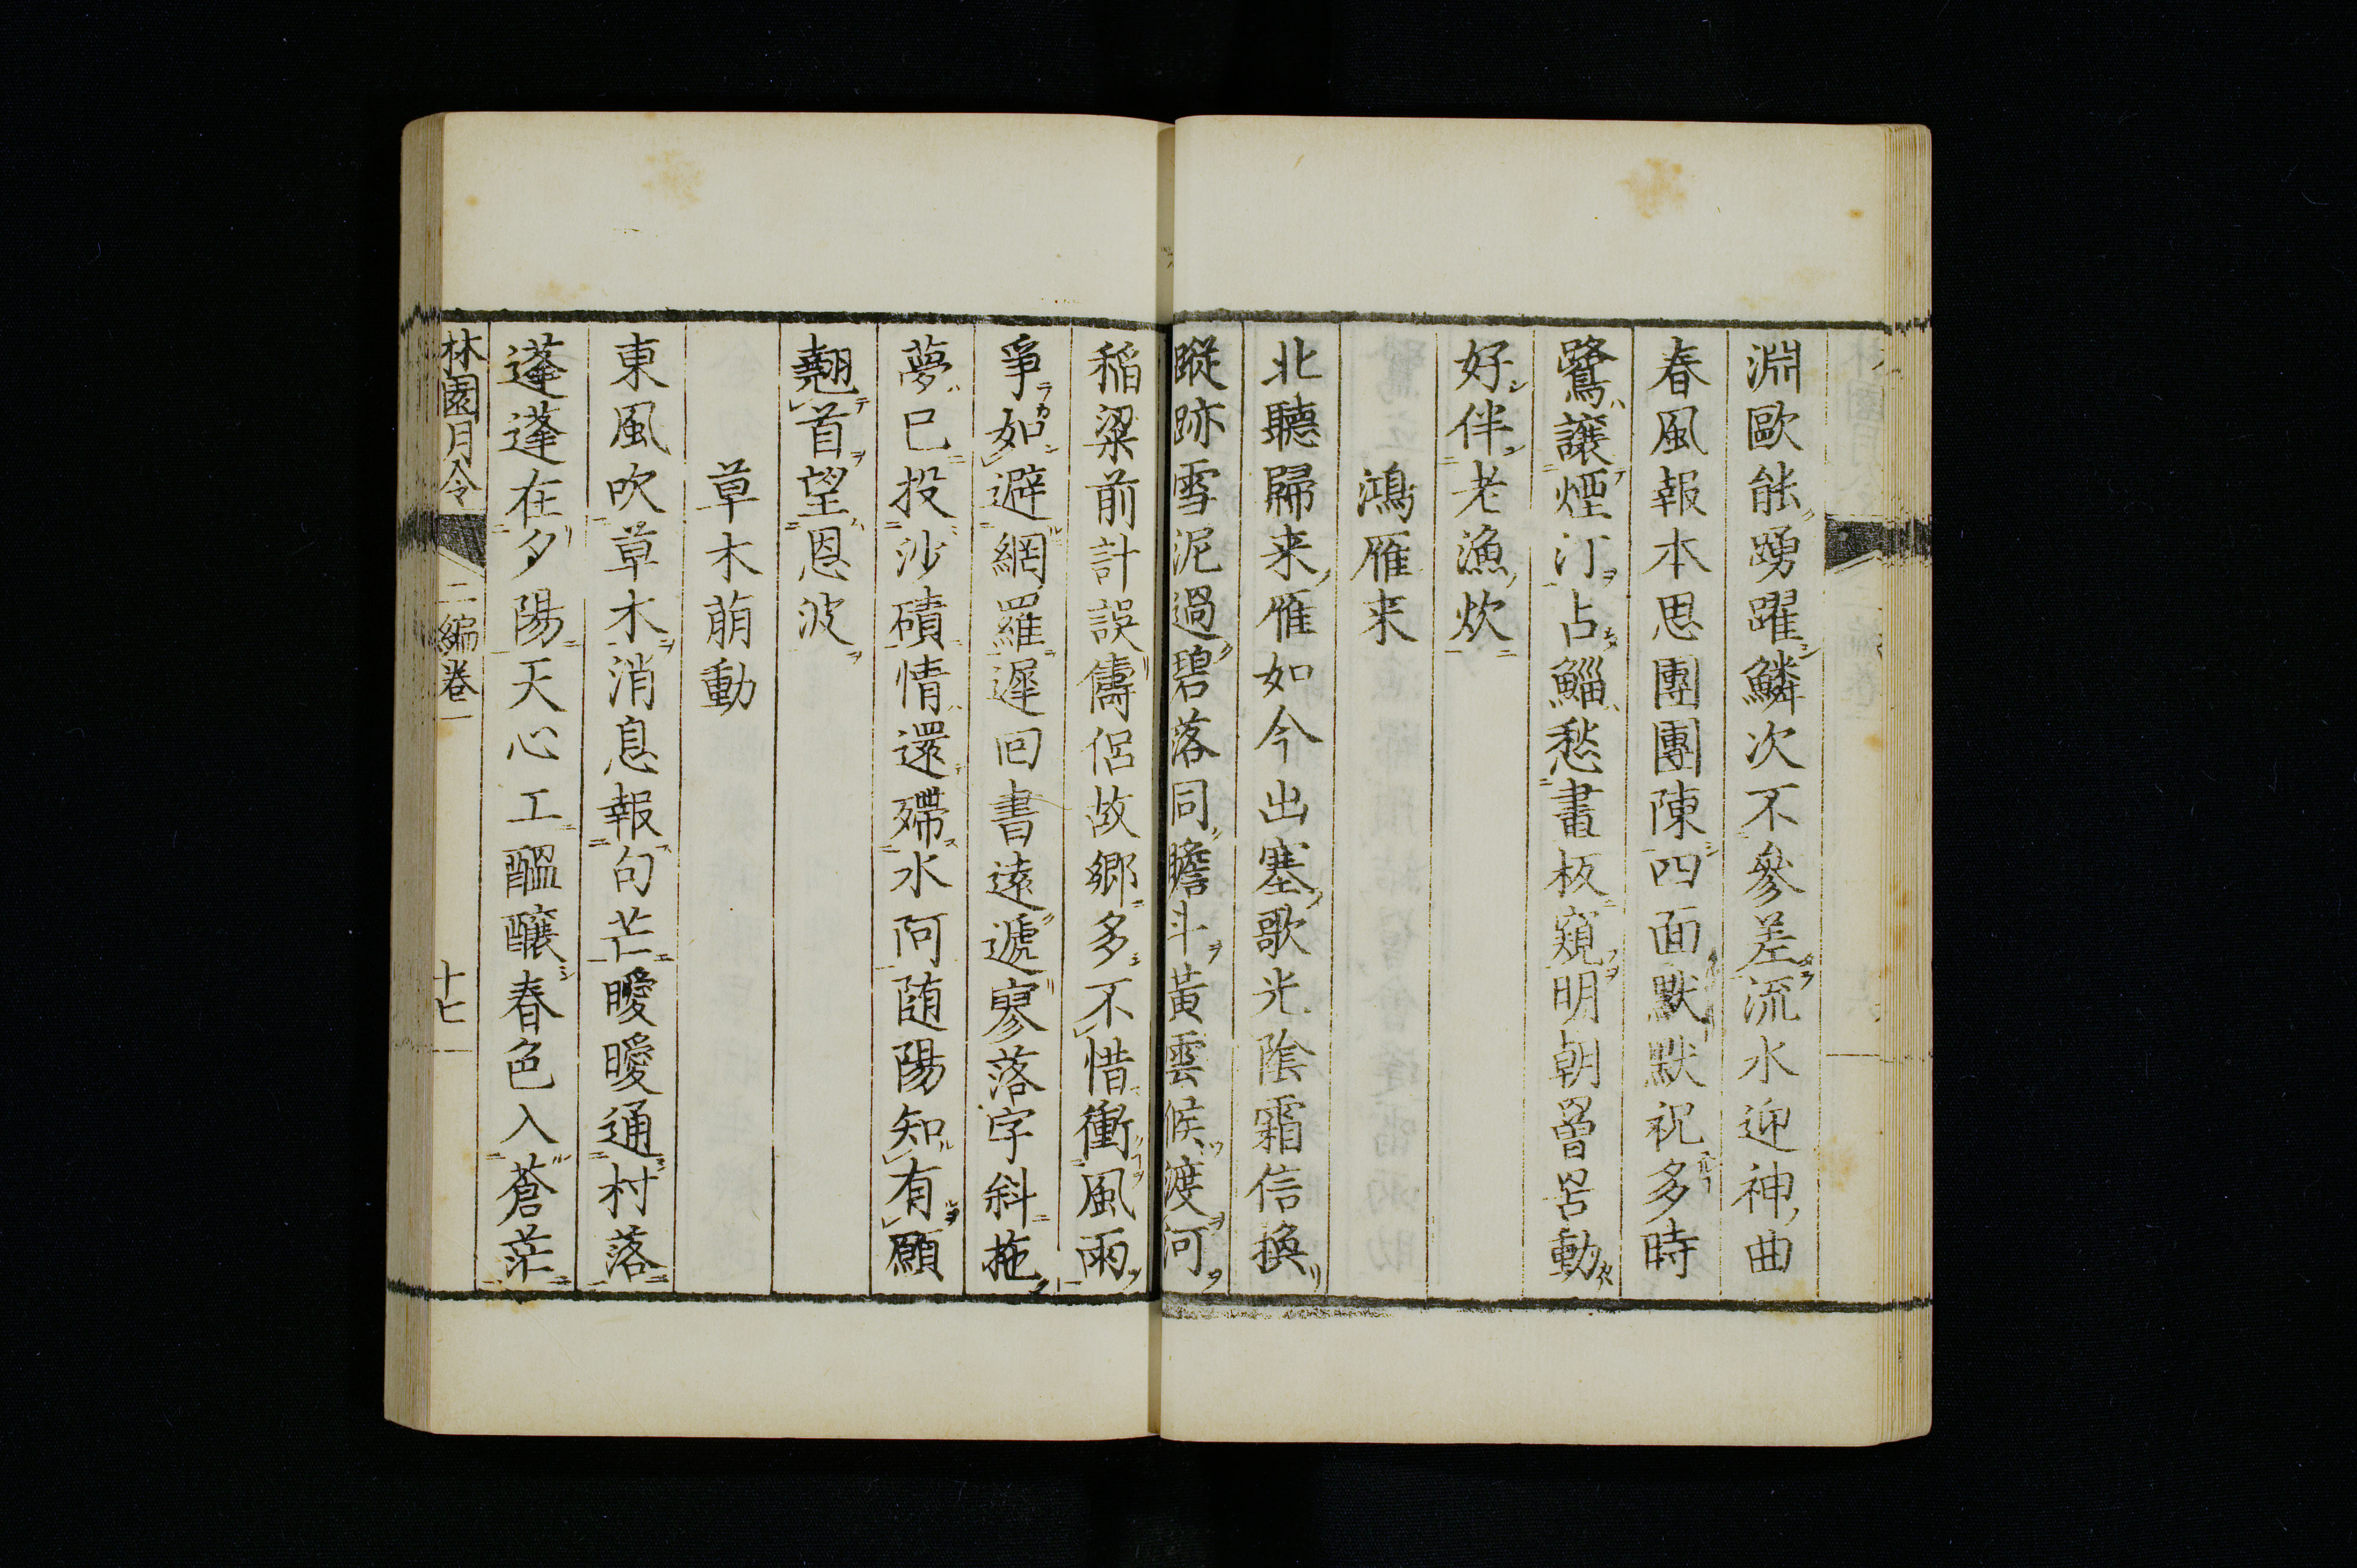 淵歐能踴躍鱗次不參差流水迎神曲
春風報本思團團陳四面默默祝多時
鷺讓煙汀占鯔愁畫板窺明朝罾罟動
好伴老漁炊
鴻雁来
北聽歸来雁如今出塞歌光陰霜信換
蹤跡雪泥過碧落同瞻斗黃雲候渡河
稲粱前計誤儔侶故郷多不惜衝風雨
爭如避網羅遲回書遠遞寥落字斜拖
夢已投沙磧情還殢水阿随陽知有願
翹首望恩波
草木萠動
東風吹草木消息報句芒曖曖通村落
蓬蓬在夕陽天心工醞釀春色入蒼茫
林園月令
二編卷一
十七